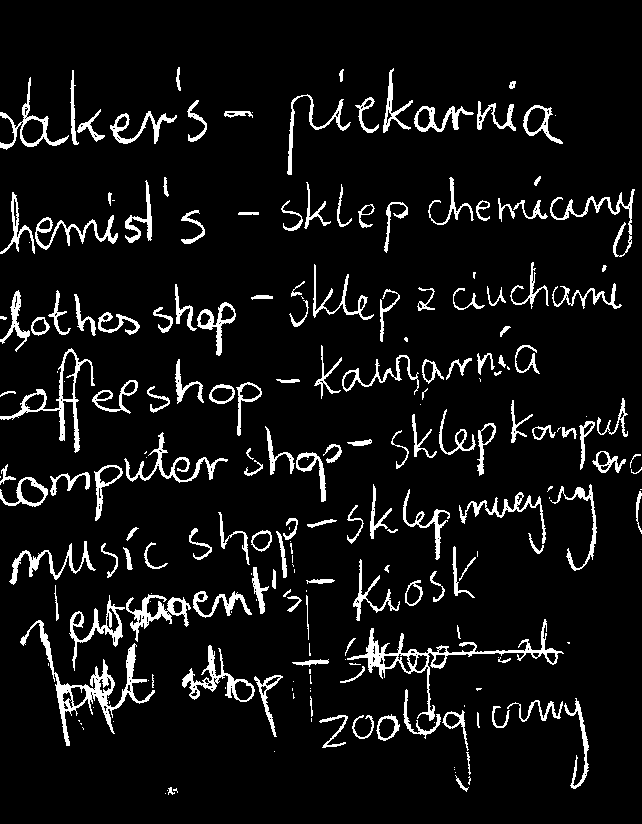 baker's - piekarnia
chemist's - sklep chemiczny
clothes shop - sklep z ciuchami
coffee shop - kawiarnia
computer shop - sklep komput
music shop - sklep muzyczny
newsagent's - kiosk
pet shop - sklep z zab
zoologiczny